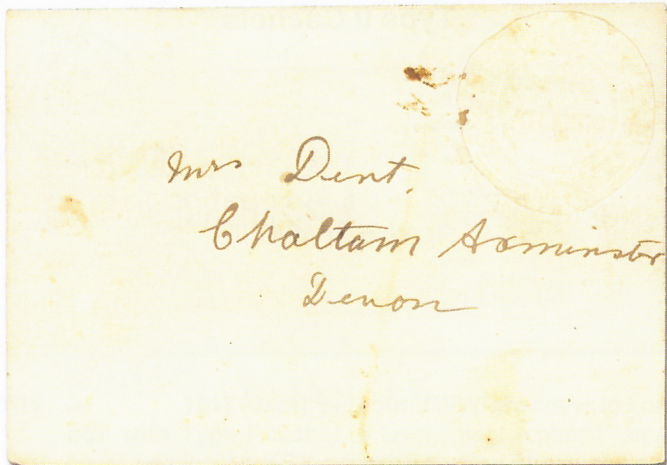 Mrs Dent.
Chaltam Axminster
Devon